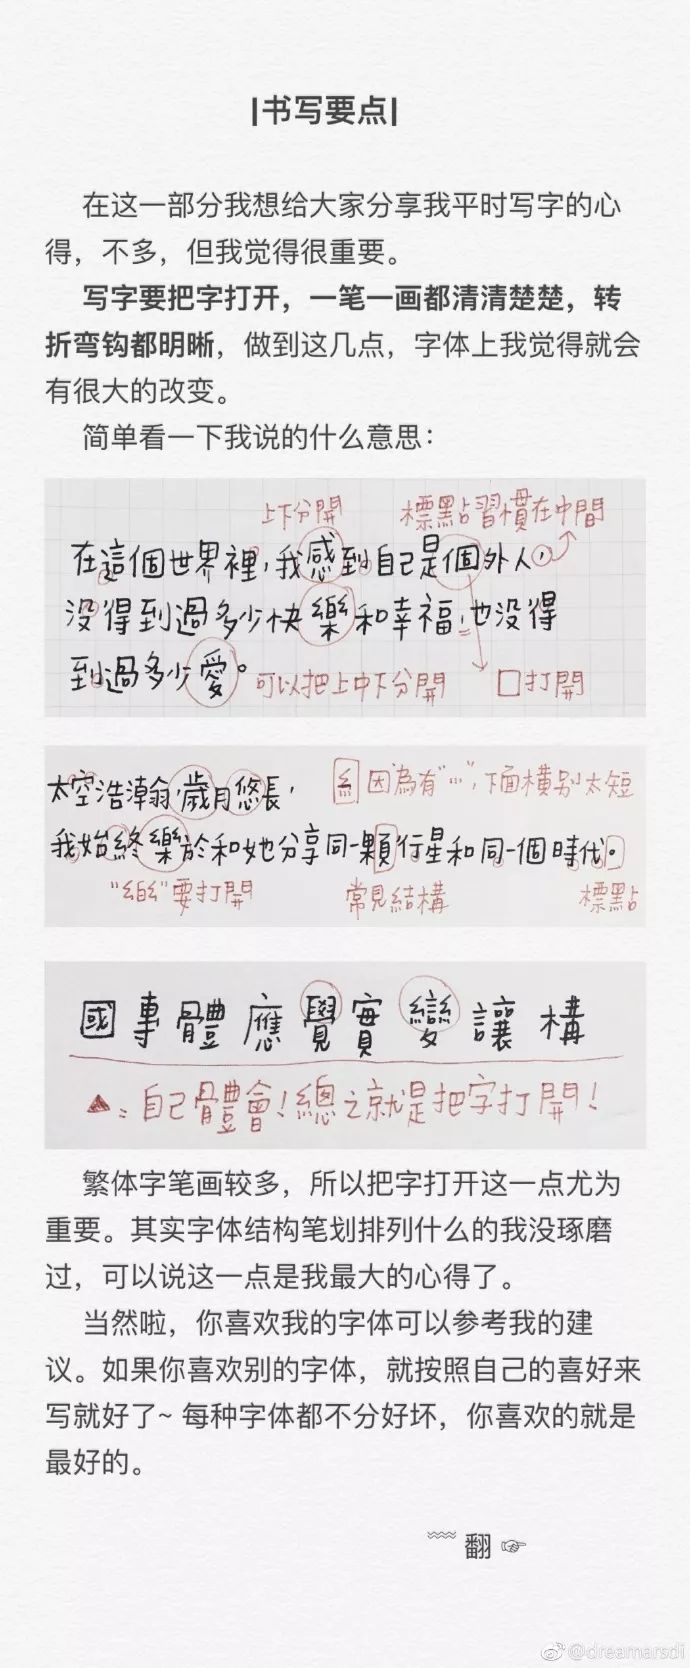 |书写要点|
在这一部分我想给大家分享我平时写字的心
得，不多，但我觉得很重要。
写字要把字打开，一笔一画都清清楚楚，转
折弯钩都明晰，做到这几点，字体上我觉得就会
有很大的改变。
简单看一下我说的什么意思：
上下分開
標點習慣在中間
在這個世界裡，我感到自己是個外人，
沒得到過多少快樂和幸福，也沒得
到過多少愛。
可以把上中下分開
口打開
太空浩瀚，歲月悠長，
糹因為有"灬"，下面橫别太短
我始終樂於和她分享同一顆行星和同一個時代。
"糹白糹"要打開
常見結構
標點
國 專 體 應 覺 實 變 讓 構
▲：自己體會！總之就是把字打開！
繁体字笔画较多，所以把字打开这一点尤为
重要。其实字体结构笔划排列什么的我没琢磨
过，可以说这一点是我最大的心得了。
当然啦，你喜欢我的字体可以参考我的建
议。如果你喜欢别的字体，就按照自己的喜好来
写就好了~ 每种字体都不分好坏，你喜欢的就是
最好的。
翻 ☞
@dreamarsdi